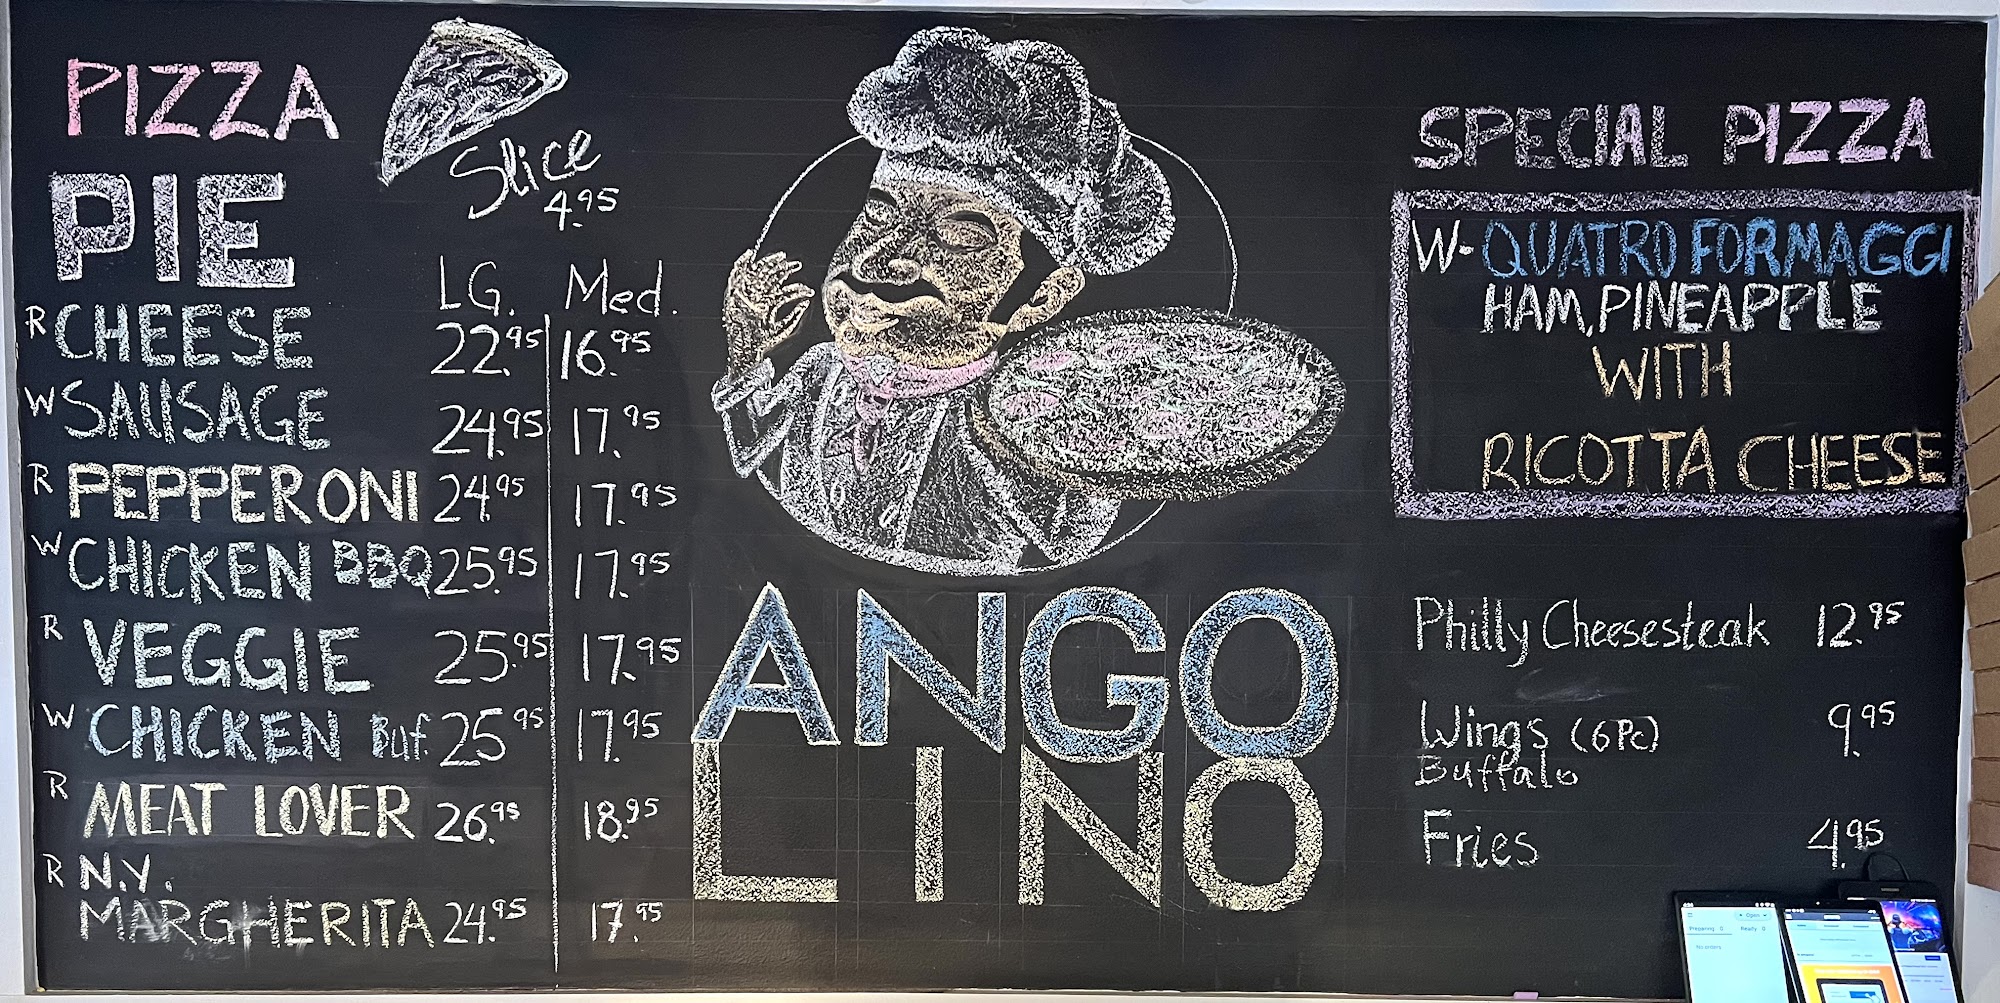 PIZZA
PIE
Slice
4.95
LG. Med.
R CHEESE 22.95 16.95
W SAUSAGE 24.95 17.95
R PEPPERONI 24.95 17.95
W CHICKEN BBQ 25.95 17.95
R VEGGIE 25.95 17.95
W CHICKEN Buf. 25.95 17.95
R MEAT LOVER 26.95 18.95
R N.Y.
MARGHERITA 24.95 17.95
ANGO
LINO
SPECIAL PIZZA
W- QUATRO FORMAGGI
HAM, PINEAPPLE
WITH
RICOTTA CHEESE
Philly Cheesesteak 12.95
Wings (6Pc) 9.95
Buffalo
Fries 4.95
Open
Preparing 0 Ready 0
No orders